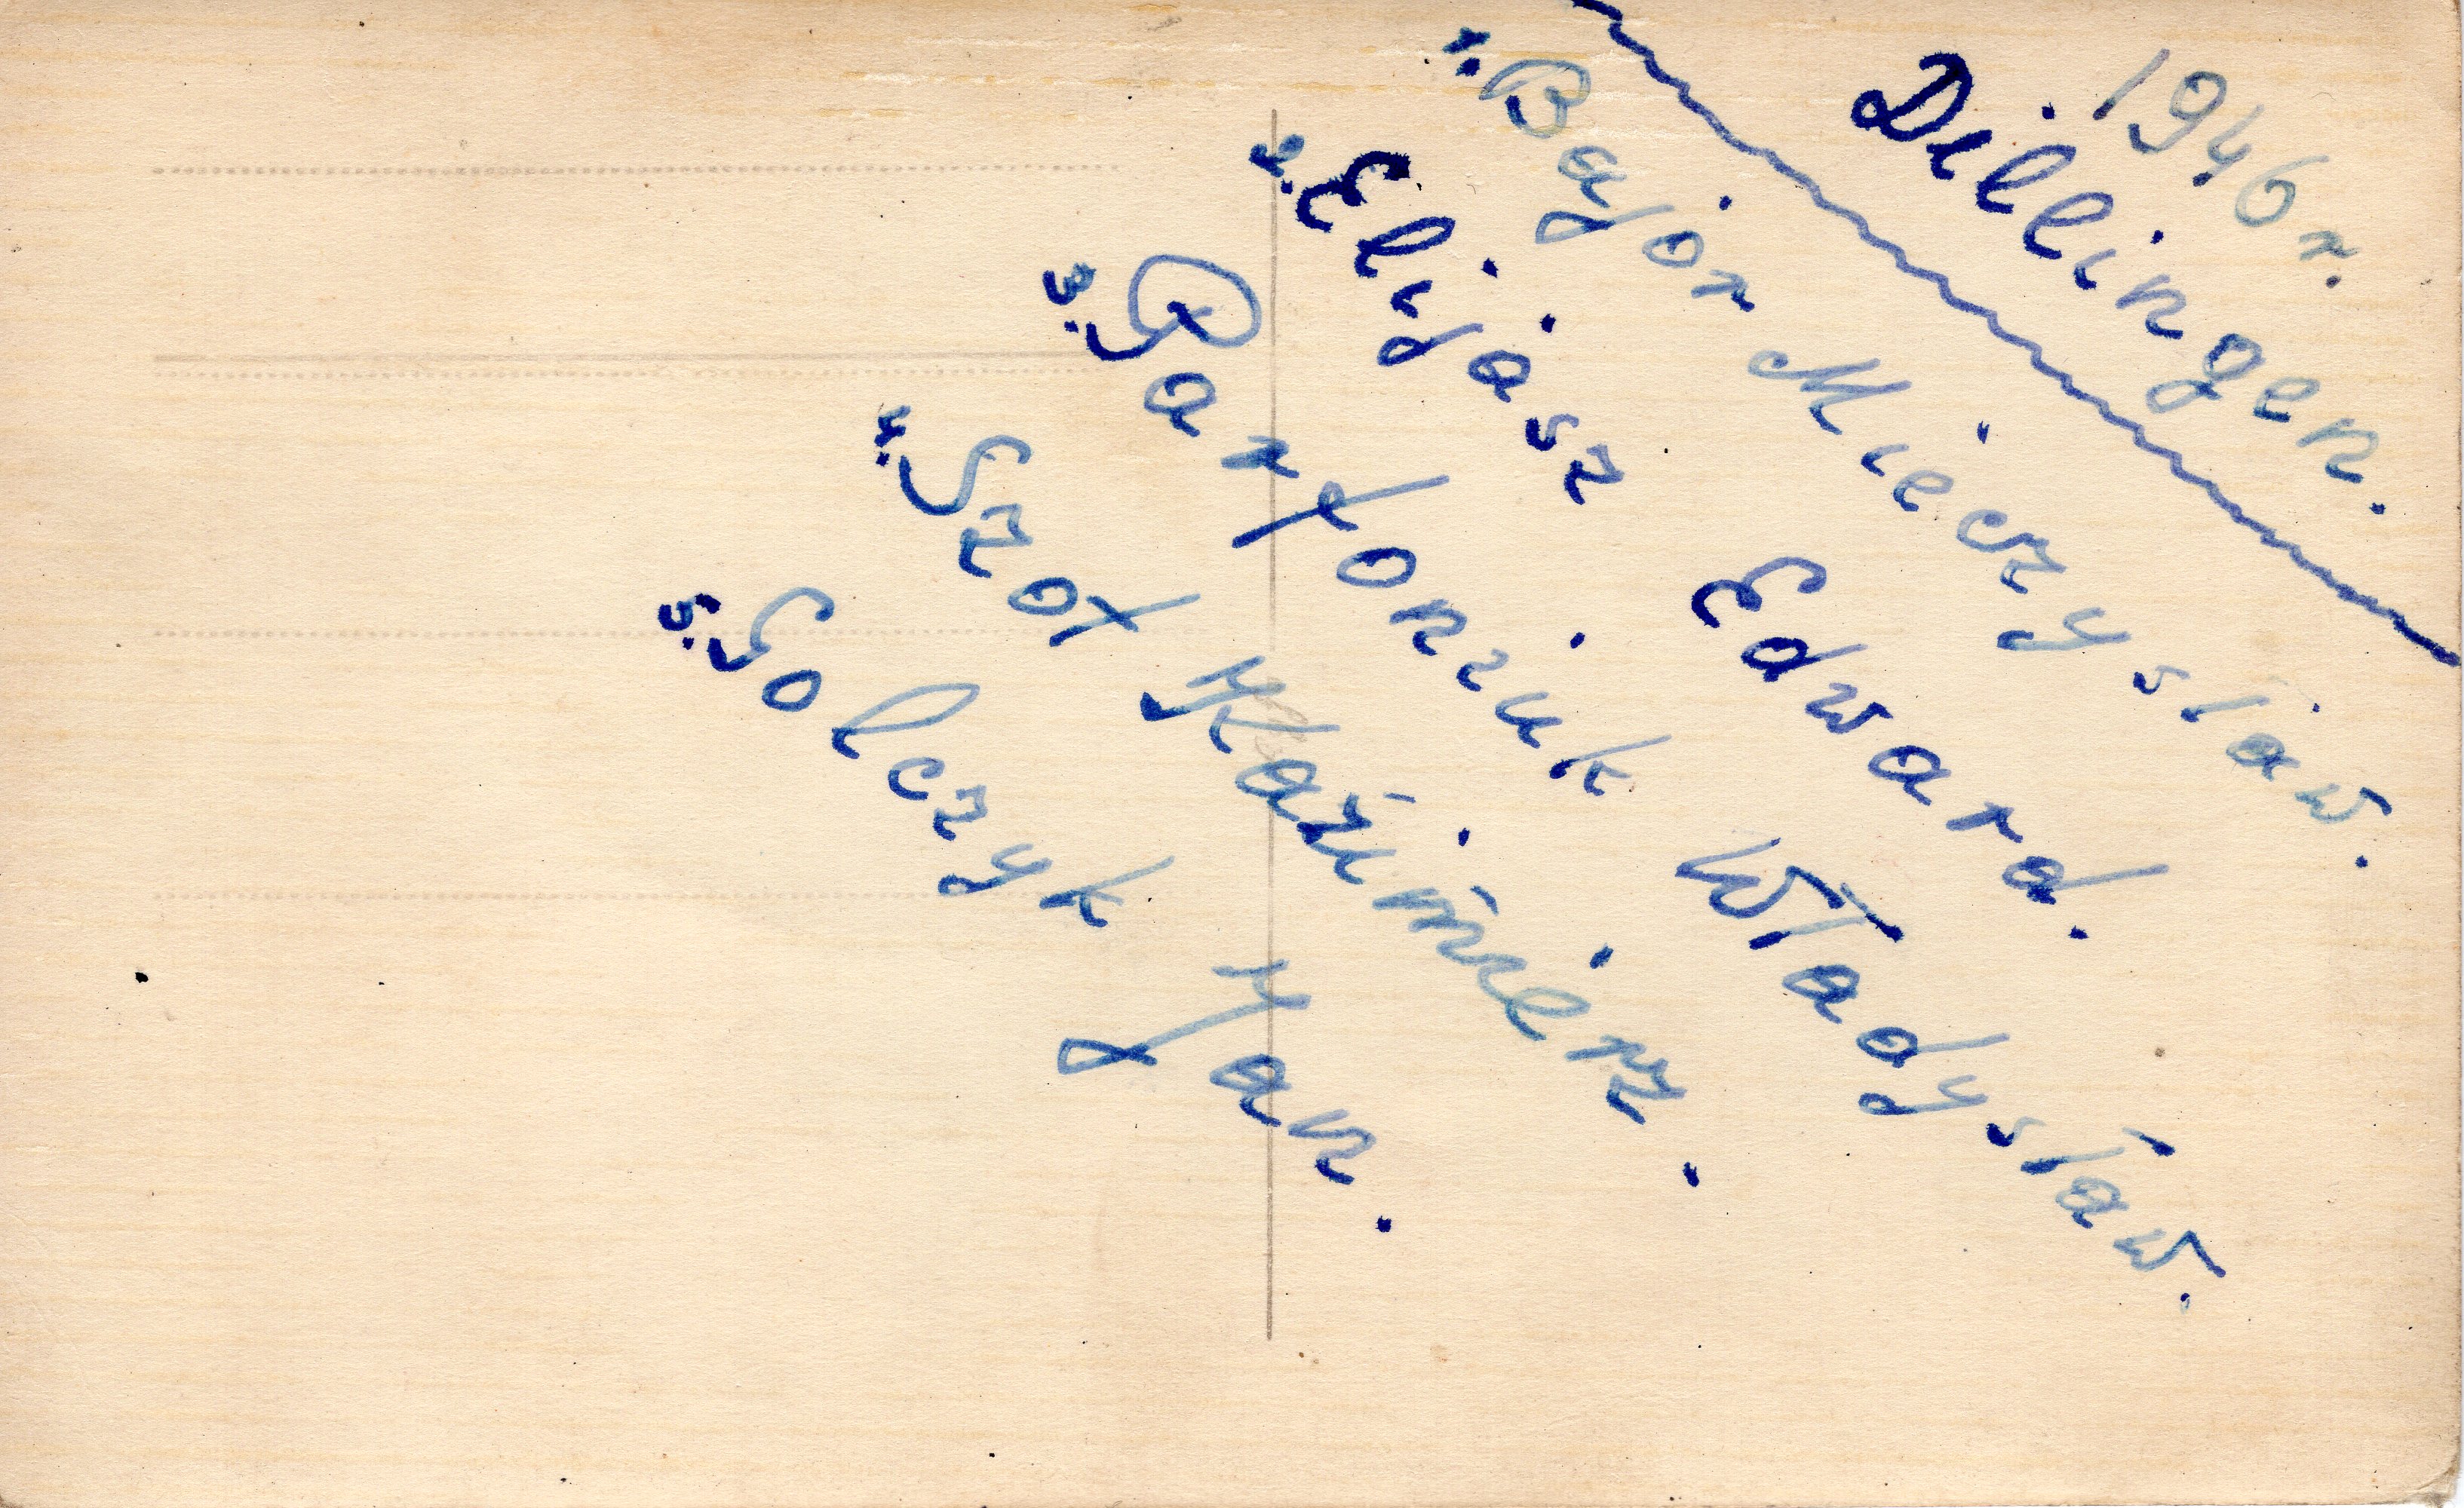 1946 r.
Dillingen.
1. Bajor Mieczysław.
2. Elijasz Edward.
3. Parfoniuk Władysław.
4. Szot Kazimierz.
5. Solczyk Jan.